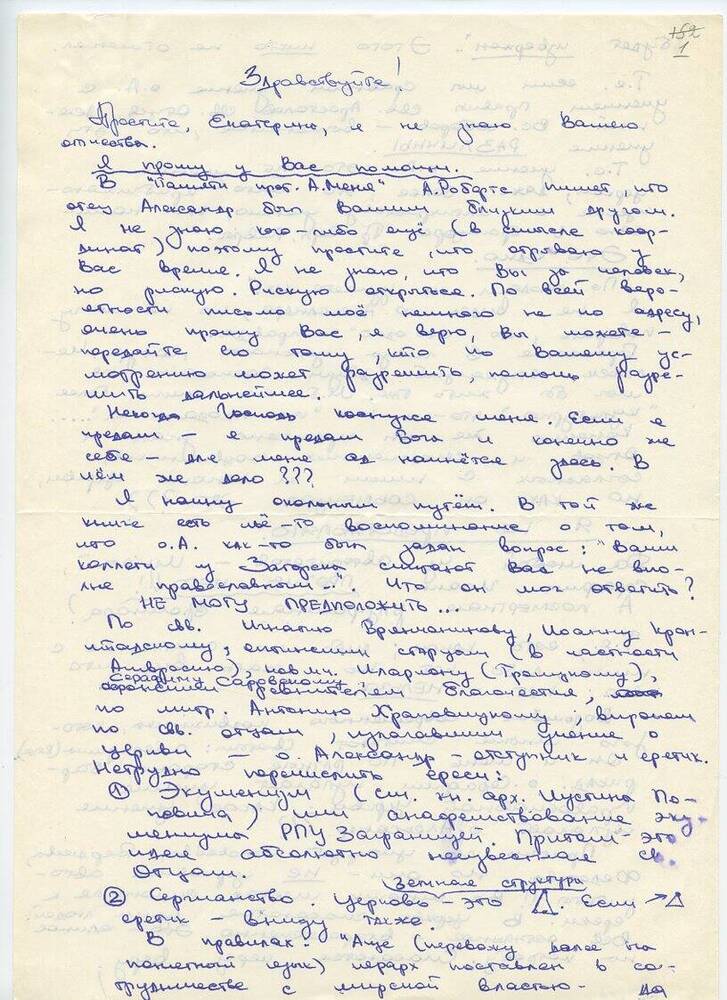 152
1
Здравствуйте!
Простите, Екатерина, я не знаю Вашего
отчества.
Я прошу у Вас помощи.
В "Памяти прот. А. Меня" А. Робертс пишет, что
отец Александр был Вашим близким другом.
Я не знаю кого-либо ещё (в смысле коор-
динат) поэтому простите, что отрываю у
Вас время. Я не знаю, что Вы за человек,
но рискую. Рискую открыться. По всей веро-
ятности письмо моё немного не по адресу,
очень прошу Вас, я верю, Вы, можете –
передайте его тому, кто по Вашему ус-
мотрению может разрешить, помочь разре-
шить дальнейшее.
Некогда Господь коснулся меня. Если я
предам – я предам Бога и конечно же
себе – для меня ад начнётся здесь. В
чём же дело???
Я начну окольным путём. В той же
книге есть чьё-то воспоминание о том,
что о.А. как-то был задан вопрос: "Ваши
коллеги у Загорска считают Вас не впо-
лне православным...". Что он мог ответить?
НЕ МОГУ ПРЕДПОЛОЖИТЬ...
По свв. Игнатию Брянчанинову, Иоанну Крон-
штадскому, оптинским старцам (в частности
Амвросию), новмч. Илариону (Троицкому),
Серафиму Саровскому
ревнителем благочестия,
по митр. Антонию Храповицкому и впрочем
по свв. отцам, излагавшим учение о
церкви – о. Александр – отступник и еретик.
Нетрудно перечислить ереси:
① Экуменизм (см. кн. арх. Иустина По-
повича) или анафемствование эку-
менизма РПЦ Заграницей. Притом – это
идея абсолютно неизвестная св.
Отцам.
земная структура
② Сергианство. Церковь – это Δ. Если → Δ
еретик – внизу также.
В правилах: "Аще (перевожу далее на
понятный язык) иерарх поставлен в со-
трудничестве с мирской властью – да